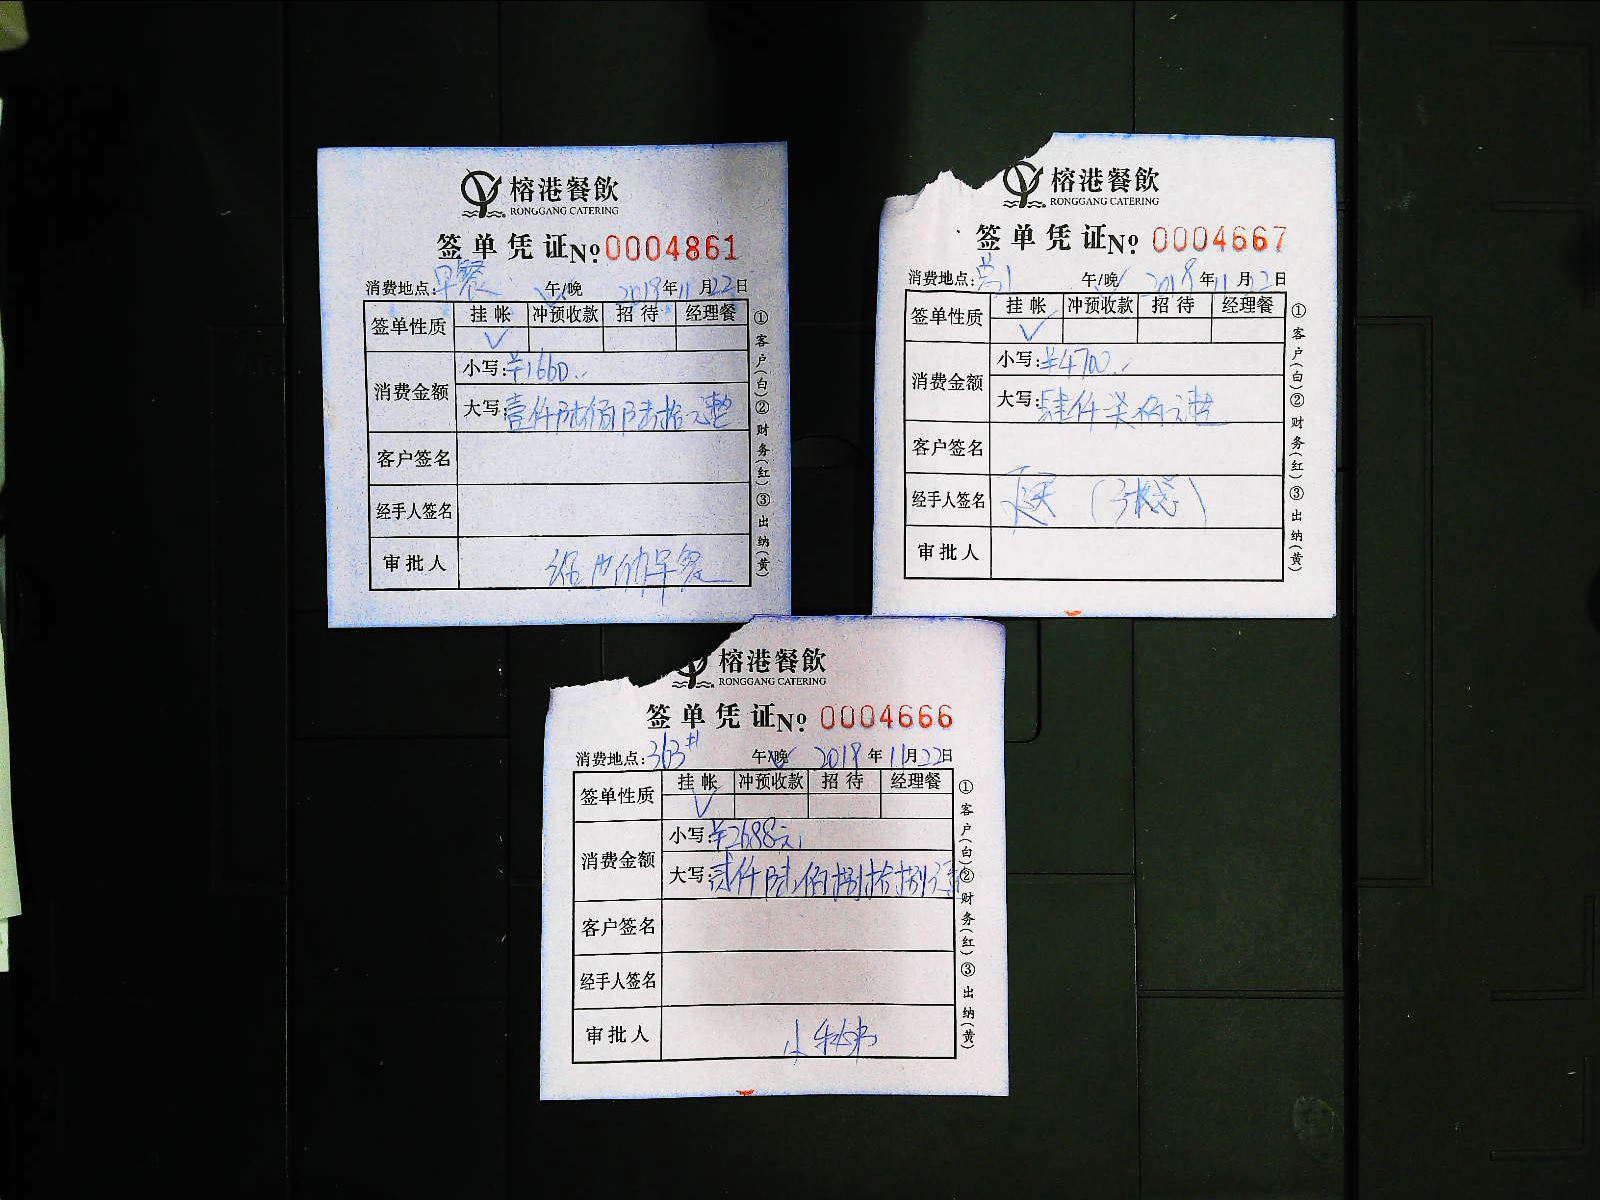 榕港餐飲
RONGGANG CATERING
签单凭证No. 0004861
消费地点: 早餐 午/晚 2019年11月22日
签单性质 挂帐 冲预收款 招待 经理餐
✓
消费金额 小写: ¥1660.
大写: 壹仟陆佰陆拾元整
客户签名
经手人签名
审批人 早餐
①客户(白)②财务(红)③出纳(黄)
榕港餐飲
RONGGANG CATERING
签单凭证No. 0004667
消费地点: 午/晚 2019年11月22日
签单性质 挂帐 冲预收款 招待 经理餐
✓
消费金额 小写: ¥4700.
大写: 肆仟柒佰元整
客户签名
经手人签名
审批人
①客户(白)②财务(红)③出纳(黄)
榕港餐飲
RONGGANG CATERING
签单凭证No. 0004666
消费地点: 363# 午/晚 2019年11月22日
签单性质 挂帐 冲预收款 招待 经理餐
✓
消费金额 小写: ¥2688元
大写: 贰仟陆佰捌拾捌元整
客户签名
经手人签名
审批人
①客户(白)②财务(红)③出纳(黄)